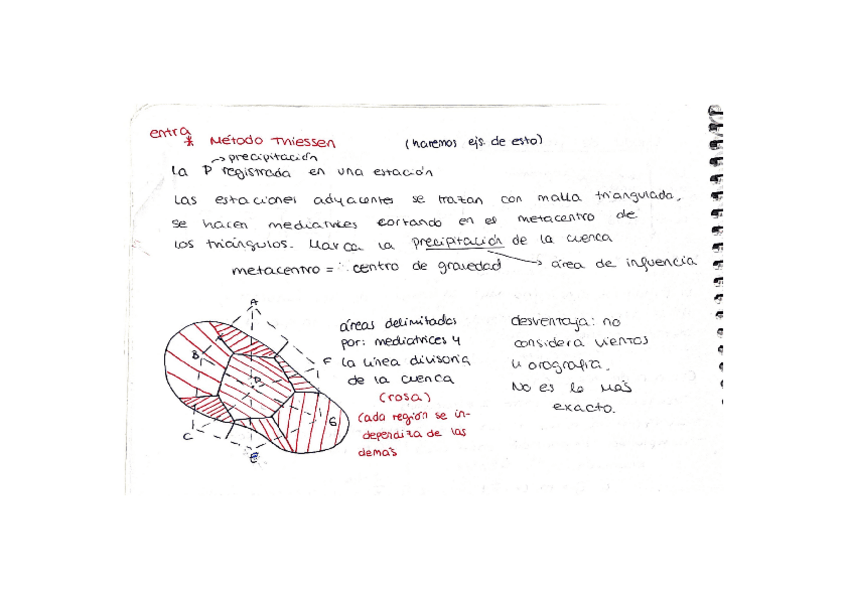 entra
* Método Thiessen (haremos ejs. de esto)
→ precipitación
La P registrada en una estación
Las estaciones adyacentes se trazan con malla triangulada,
se hacen mediatrices cortando en el metacentro de
los triángulos. Marca la precipitación de la cuenca
metacentro = centro de gravedad → área de influencia
A
áreas delimitadas
por: mediatrices y
la línea divisoria
de la cuenca
(rosa)
cada región se in-
dependiza de las
demas
desventaja: no
considera vientos
u orografía.
No es lo más
exacto.
B
F
G
C
E